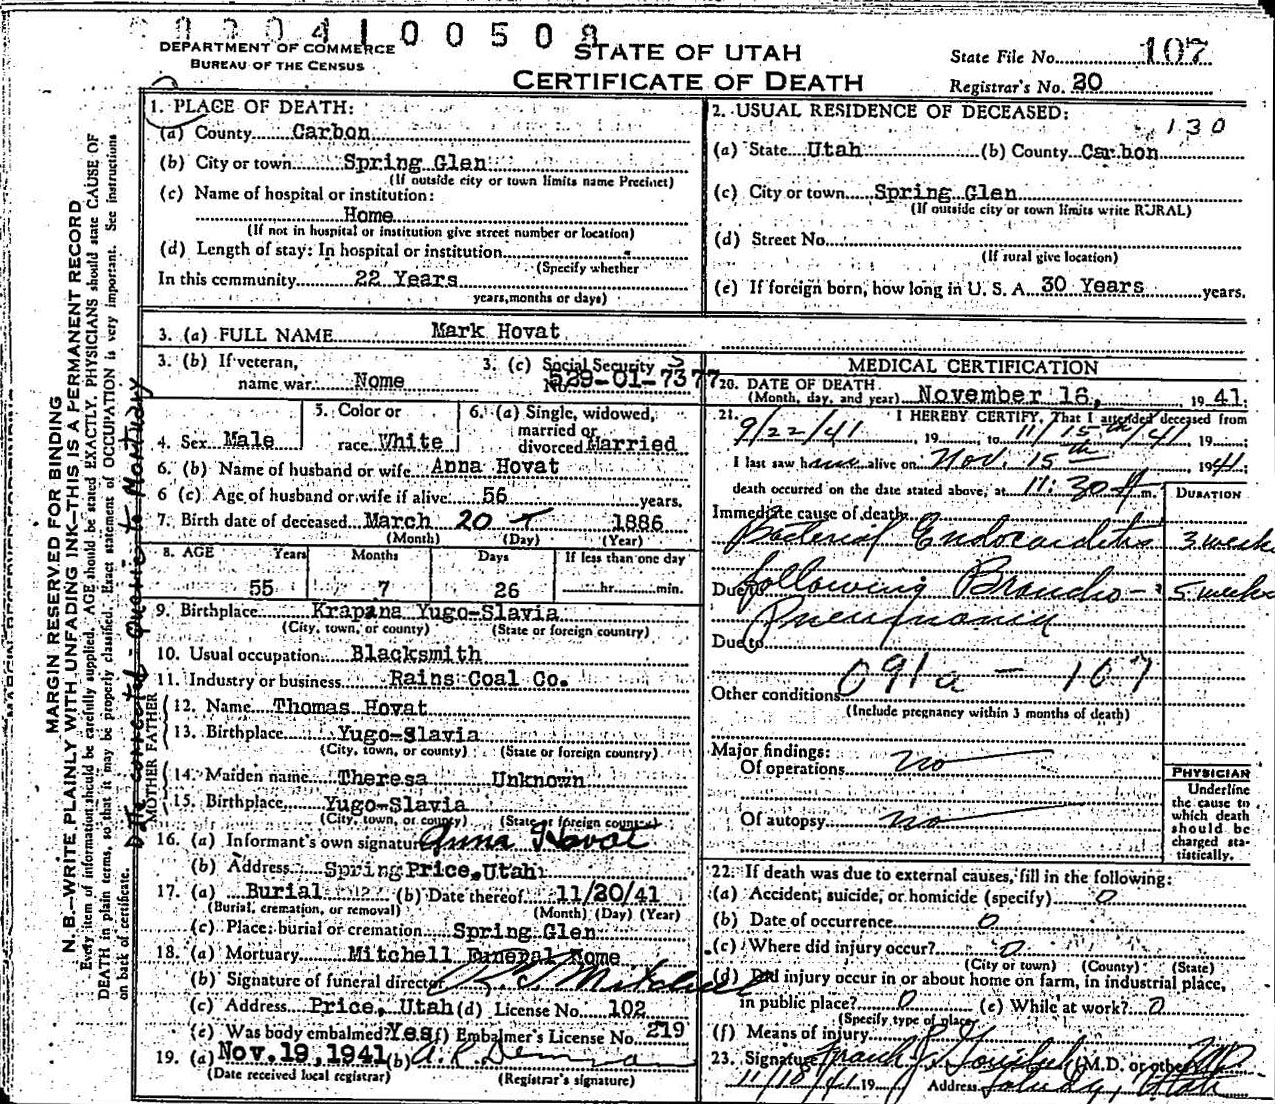 8204100508
DEPARTMENT OF COMMERCE
BUREAU OF THE CENSUS
STATE OF UTAH
CERTIFICATE OF DEATH
State File No. 107
Registrar's No. 20
MARGIN RESERVED FOR BINDING
N. B.—WRITE PLAINLY WITH UNFADING INK—THIS IS A PERMANENT RECORD
Every item of information should be carefully supplied. AGE should be stated EXACTLY. PHYSICIANS should state CAUSE OF
DEATH in plain terms, so that it may be properly classified. Exact statement of OCCUPATION is very important. See instructions
on back of certificate.
Date corrected - Queried to Mortuary
1. PLACE OF DEATH:
(a) County Carbon
(b) City or town Spring Glen
(If outside city or town limits name Precinct)
(c) Name of hospital or institution:
Home
(If not in hospital or institution give street number or location)
(d) Length of stay: In hospital or institution -
(Specify whether
In this community 22 Years
years, months or days)
2. USUAL RESIDENCE OF DECEASED:
130
(a) State Utah (b) County Carbon
(c) City or town Spring Glen
(If outside city or town limits write RURAL)
(d) Street No.
(If rural give location)
(e) If foreign born, how long in U. S. A. 30 Years years.
3. (a) FULL NAME Mark Hovat
3. (b) If veteran,
name war. Nome
3. (c) Social Security
No. 529-01-7377
4. Sex Male
5. Color or
race White
6. (a) Single, widowed,
married or
divorced Married
6. (b) Name of husband or wife Anna Hovat
6 (c) Age of husband or wife if alive 56 years.
7. Birth date of deceased March 20 1886
(Month) (Day) (Year)
8. AGE Years Months Days If less than one day
55 7 26 hr. min.
9. Birthplace Krapana Yugo-Slavia
(City, town, or county) (State or foreign country)
10. Usual occupation Blacksmith
11. Industry or business Rains Coal Co.
FATHER
12. Name Thomas Hovat
13. Birthplace Yugo-Slavia
(City, town, or county) (State or foreign country)
MOTHER
14. Maiden name Theresa Unknown
15. Birthplace Yugo-Slavia
(City, town, or county) (State or foreign country)
16. (a) Informant's own signature Anna Hovat
(b) Address Spring Price, Utah
17. (a) Burial (b) Date thereof 11/20/41
(Burial, cremation, or removal) (Month) (Day) (Year)
(c) Place: burial or cremation Spring Glen
18. (a) Mortuary Mitchell Funeral Home
(b) Signature of funeral director Mitchell
(c) Address Price, Utah (d) License No. 102
(e) Was body embalmed? Yes (f) Embalmer's License No. 219
19. (a) Nov. 19, 1941 (b)
(Date received local registrar) (Registrar's signature)
MEDICAL CERTIFICATION
20. DATE OF DEATH
(Month, day, and year) November 16, 1941
21. I HEREBY CERTIFY, That I attended deceased from
9/22/41, 19 to 11/15th/41, 19
I last saw him alive on Nov. 15th, 1941
death occurred on the date stated above, at 11:30 A m.
DURATION
Immediate cause of death
Bacterial Endocarditis 3 weeks
Due to following Broncho- 5 weeks
Pneumonia
Due to
091a - 107
Other conditions
(Include pregnancy within 3 months of death)
Major findings:
Of operations no
Of autopsy no
PHYSICIAN
Underline
the cause to
which death
should be
charged sta-
tistically.
22. If death was due to external causes, fill in the following:
(a) Accident, suicide, or homicide (specify) 0
(b) Date of occurrence 0
(c) Where did injury occur? 0
(City or town) (County) (State)
(d) Did injury occur in or about home on farm, in industrial place,
in public place? 0 (e) While at work? 0
(Specify type of place)
(f) Means of injury
23. Signature Frank (M.D. or other) MD
11/18/41 19 Address Utah